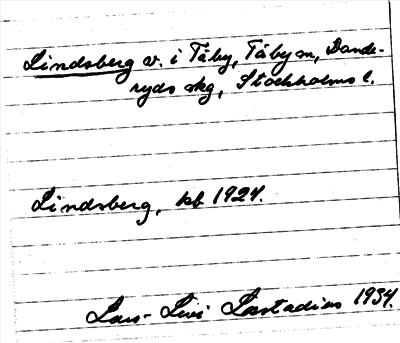 Lindsberg v. i Täby, Täby sn, Dande-
ryds skg, Stockholms l.
Lindsberg, kb 1924.
Lars-Livi Læstadius 1934.